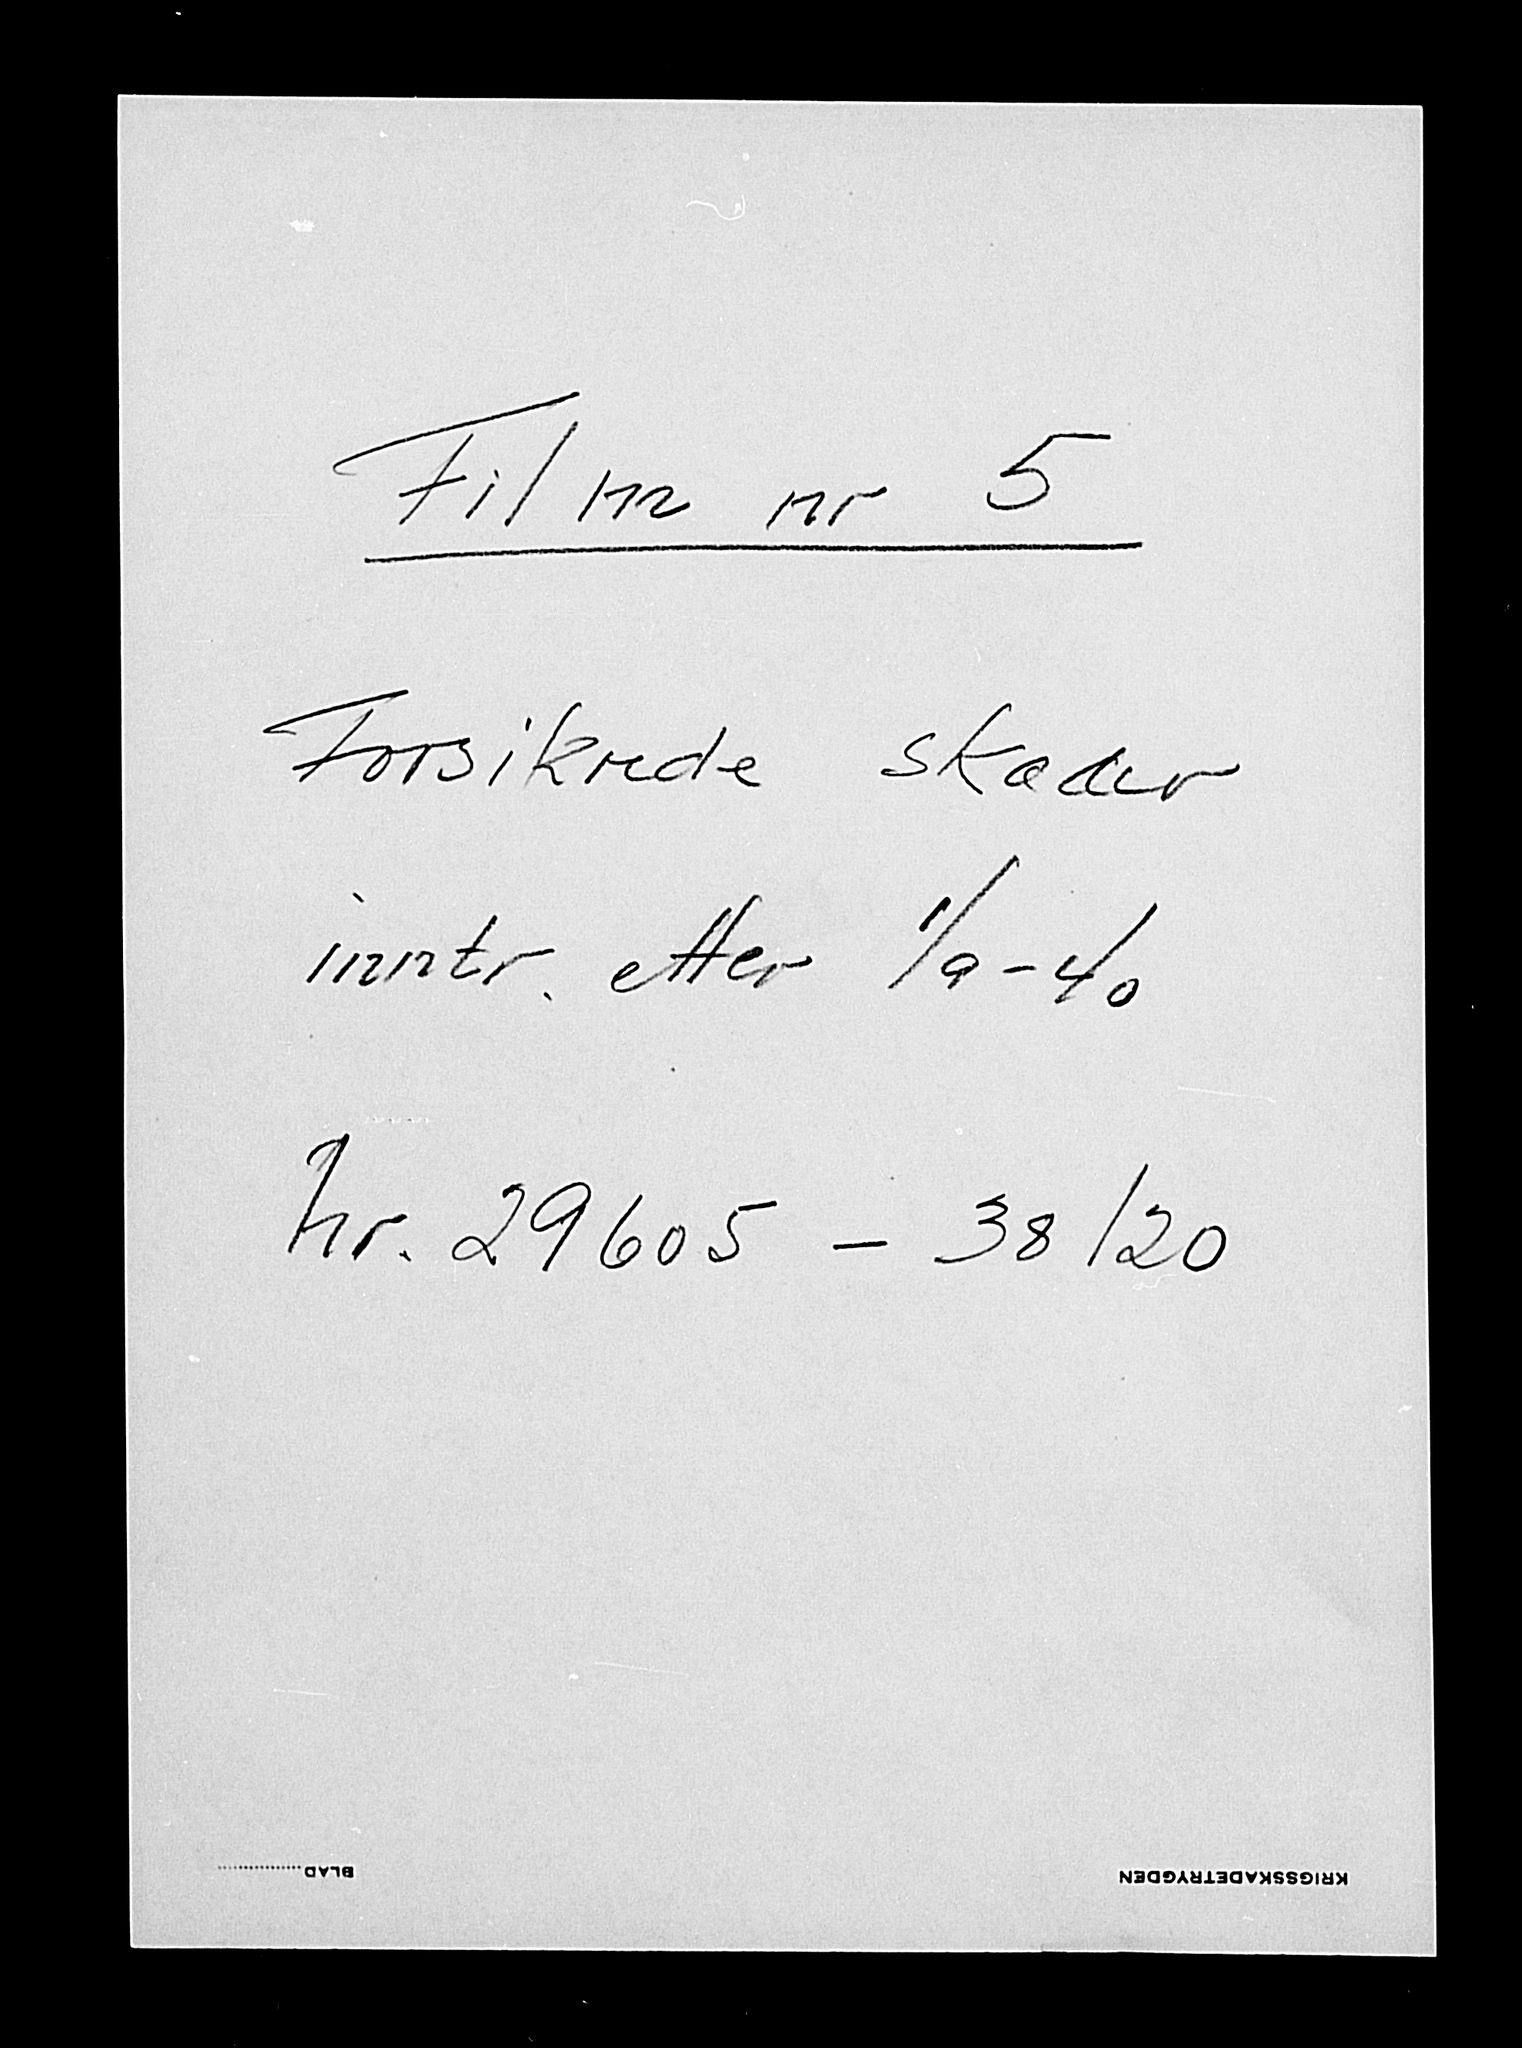 Film nr 5
Forsikrede skader
inntr. etter 1/9-40
nr. 29605 - 38120
BLAD...............
KRIGSSKADETRYGDEN